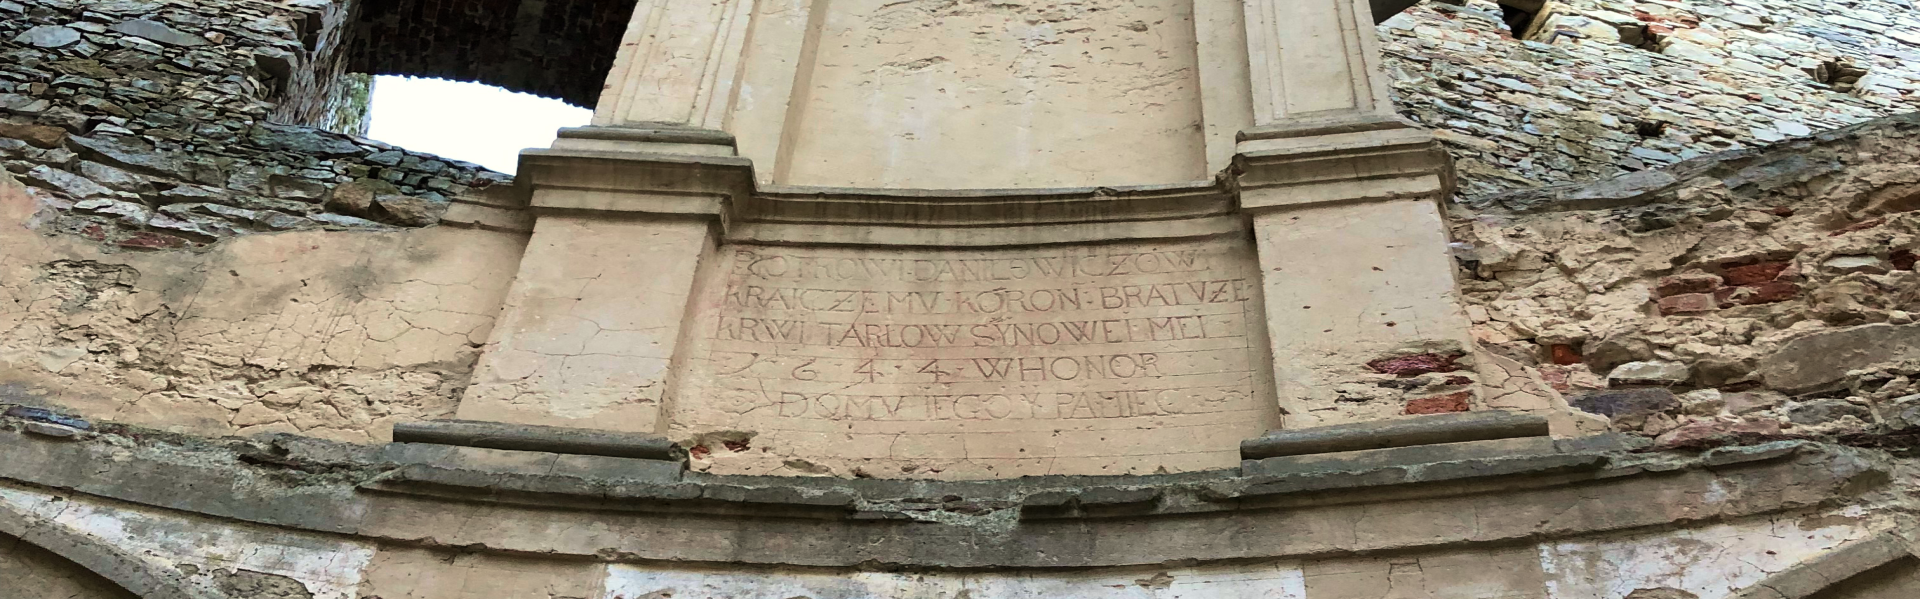 PIOTROWI·DANILOWICZOWI
KRAICZEMV·KORON·BRATVZE
KRWI TARLOW SYNOWEI MEI
1 6 4 4 WHONOR
DOMV IEGO Y PAMIEC